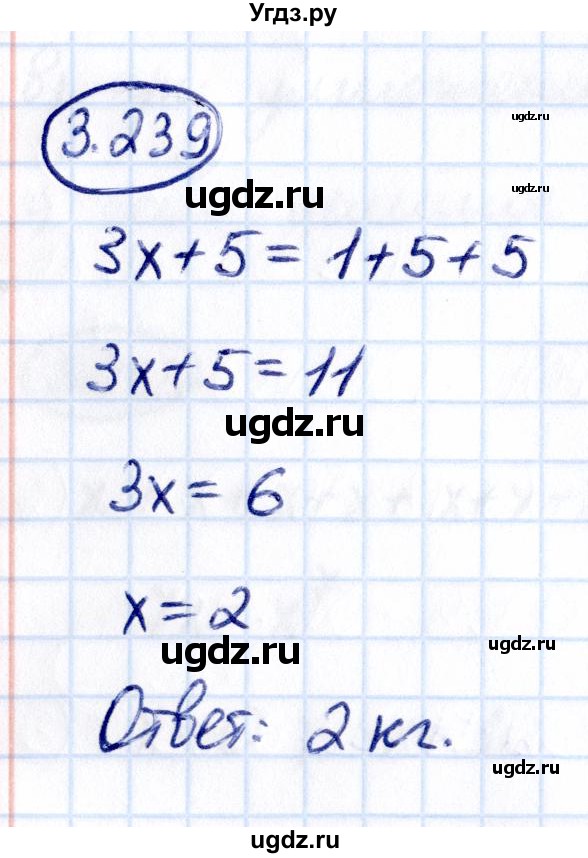 Угдз.ру
ugdz.ru
3.239
ugdz.ru
ugdz.ru
3x+5=1+5+5
3x+5=11
ugdz.ru
3x=6
x=2
ugdz.ru
ugdz.ru
Ответ: 2 кг.
ugdz.ru
ugdz.ru